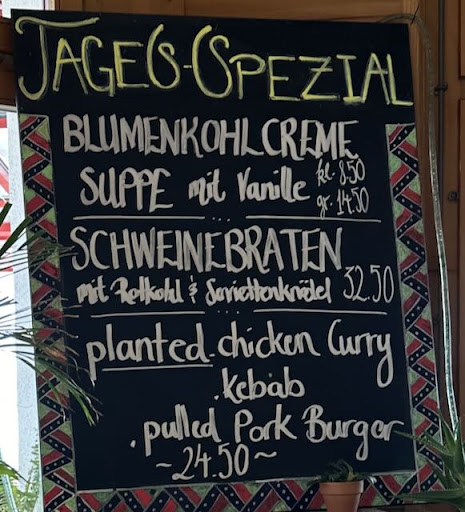 TAGES-SPEZIAL
BLUMENKOHLCREME
SUPPE mit Vanille kl. 8.50
gr. 14.50
SCHWEINEBRATEN
mit Rotkohl & Serviettenknödel 32.50
planted.chicken Curry
.kebab
.pulled Pork Burger
~24.50~